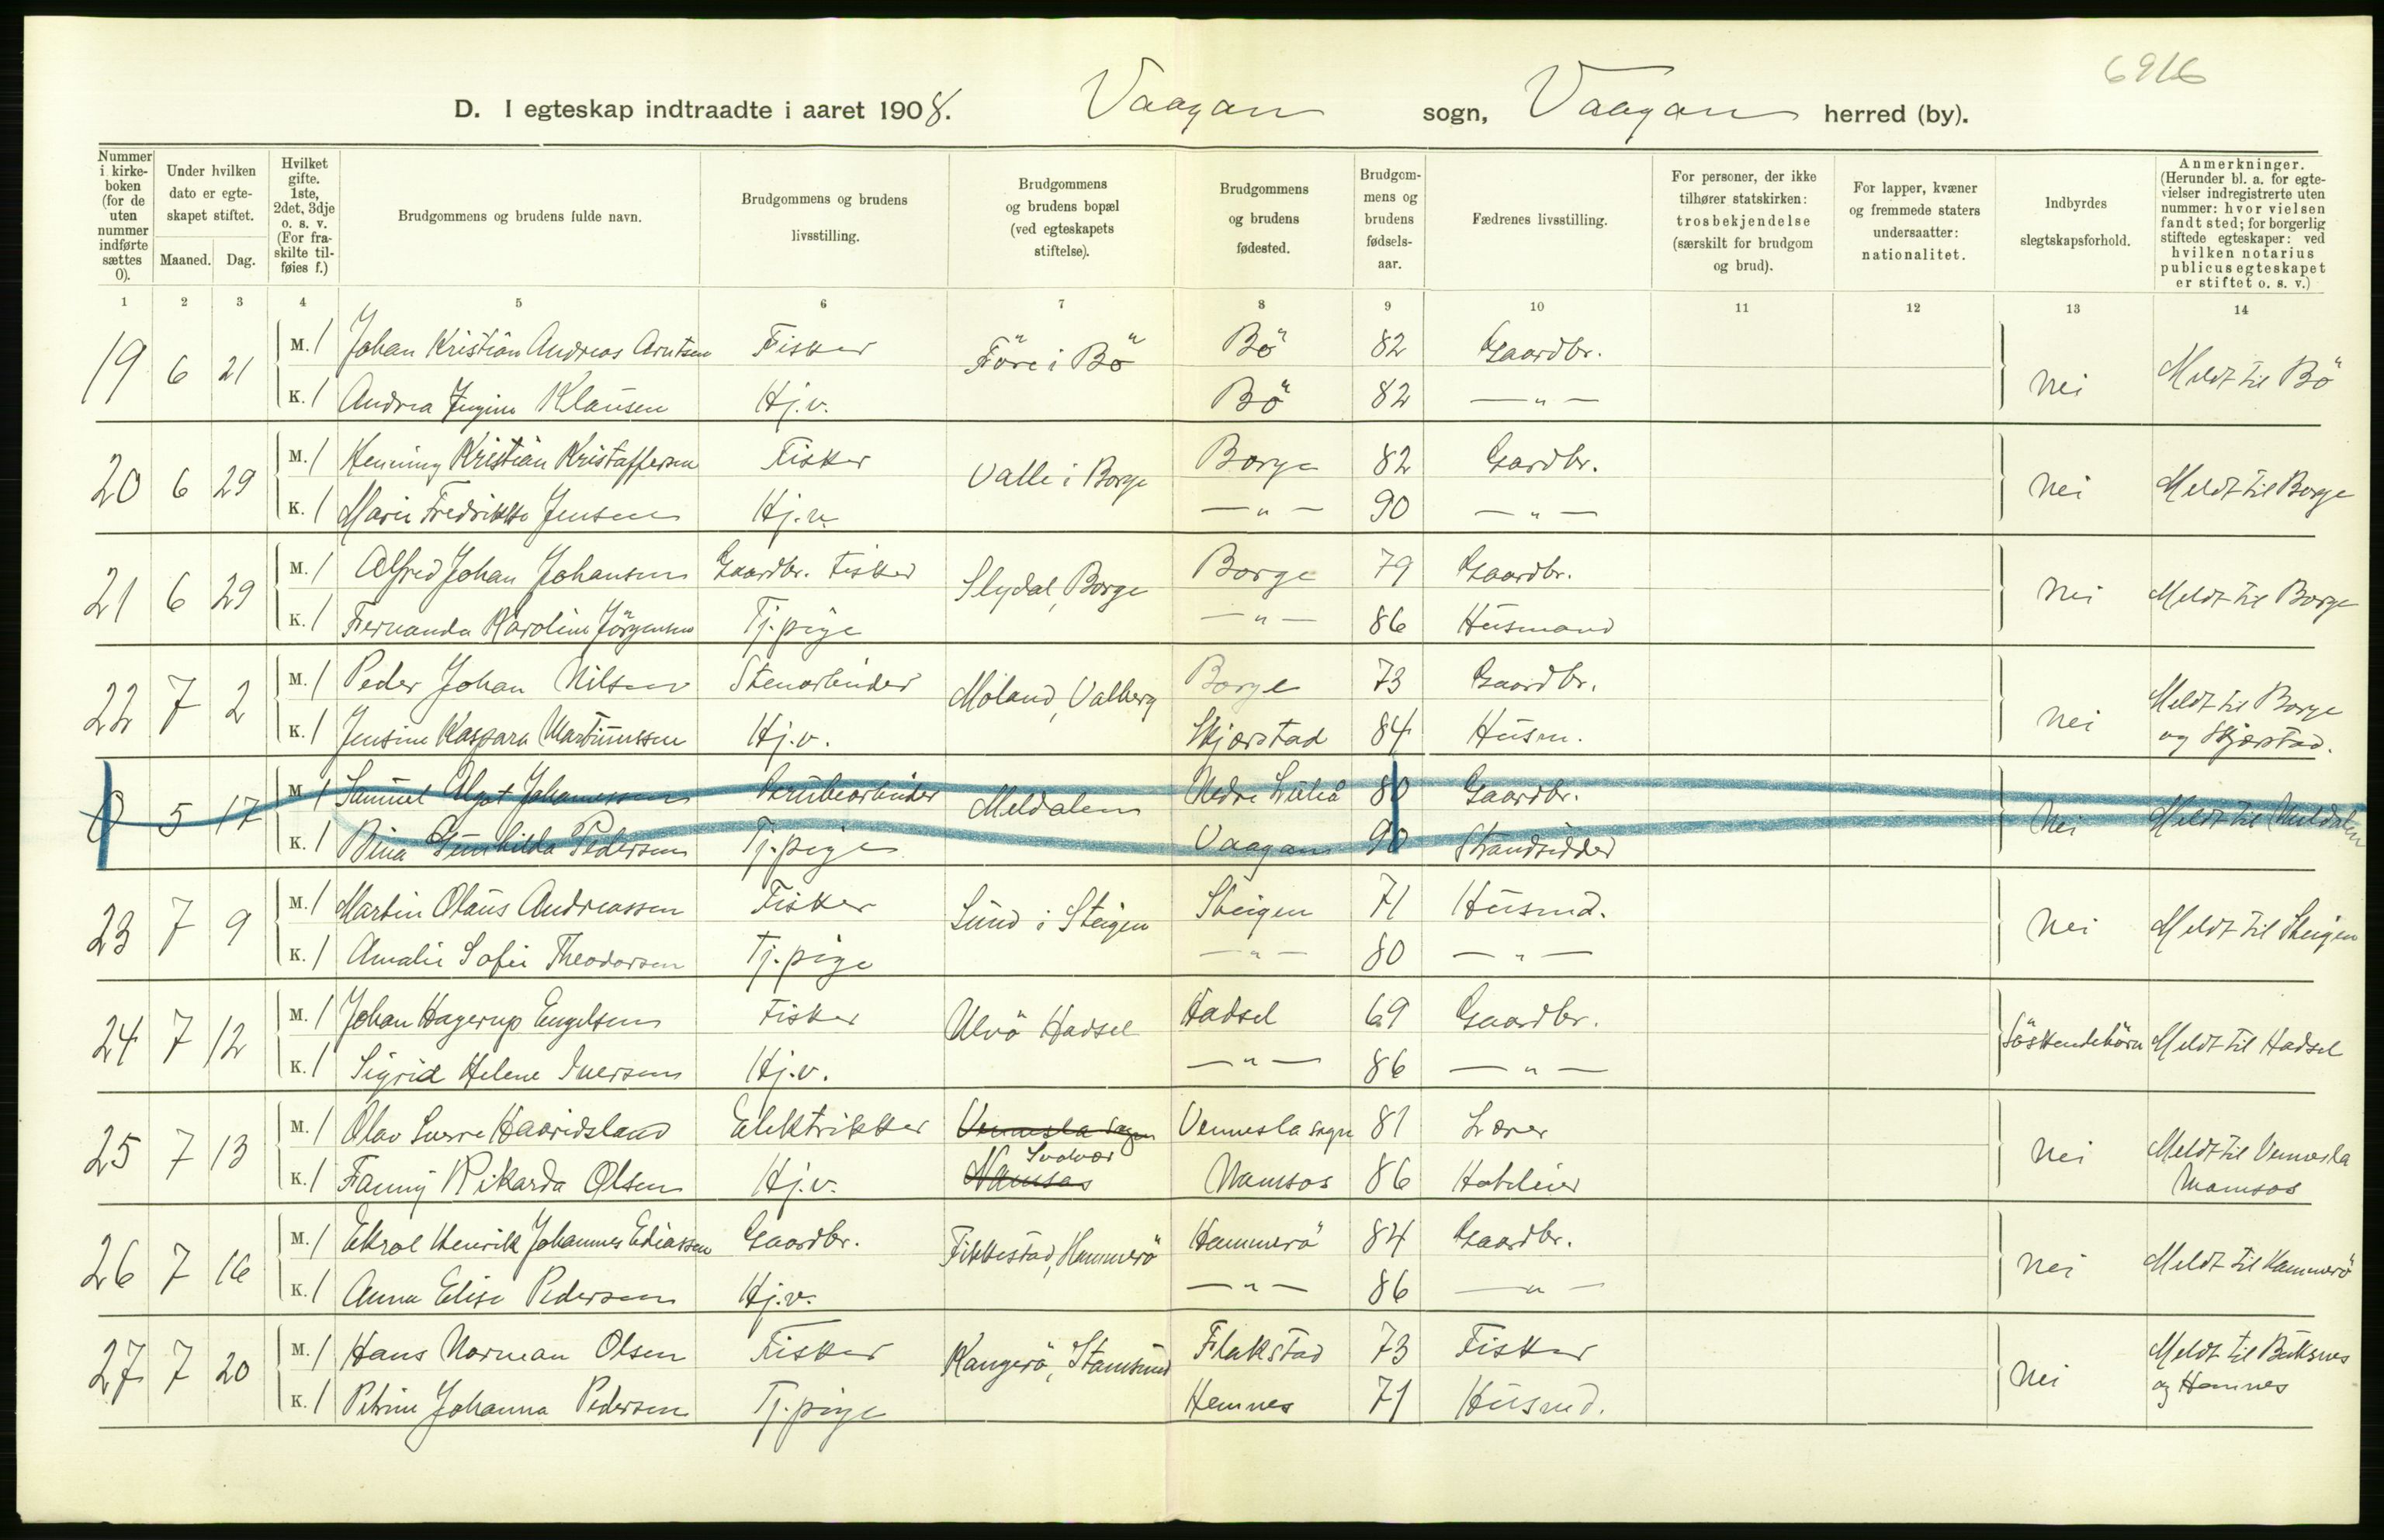 6916
D. I egteskap indtraadte i aaret 1908. Vaagan sogn, Vaagan herred (by).
Nummer i kirkeboken (for de uten nummer indførte sættes 0).
Under hvilken dato er egteskapet stiftet.
Maaned. Dag.
Hvilket gifte. 1ste, 2det, 3dje o. s. v. (For fraskilte tilføies f.)
Brudgommens og brudens fulde navn.
Brudgommens og brudens livsstilling.
Brudgommens og brudens bopæl (ved egteskapets stiftelse).
Brudgommens og brudens fødested.
Brudgommens og brudens fødselsaar.
Fædrenes livsstilling.
For personer, der ikke tilhører statskirken: trosbekjendelse (særskilt for brudgom og brud).
For lapper, kvæner og fremmede staters undersaatter: nationalitet.
Indbyrdes slegtskapsforhold.
Anmerkninger. (Herunder bl. a. for egtevielser indregistrerte uten nummer: hvor vielsen fandt sted; for borgerlig stiftede egteskaper: ved hvilken notarius publicus egteskapet er stiftet o. s. v.)
1 2 3 4 5 6 7 8 9 10 11 12 13 14
19 6 21 M. 1 Johan Kristian Andreas Arntsen Fisker Före i Bö Bö 82 Gaardbr. Nei Meldt til Bö
K. 1 Andrea Jugine Klausen Hj.v. Bö 82 — " —
20 6 29 M. 1 Henning Kristian Kristoffersen Fisker Valle i Borge Borge 82 Gardbr. Nei Meldt til Borge
K. 1 Marie Fredrikke Jensen Hj.v. — " — 90 — " —
21 6 29 M. 1 Alfred Johan Johansen Gaardbr. Fisker Slydal, Borge Borge 79 Gaardbr. Nei Meldt til Borge
K. 1 Fernanda Karoline Jörgensen Tj.pige — " — 86 Husmand
22 7 2 M. 1 Peder Johan Nilsen Stenarbeider Moland, Valberg Borge 73 Gaardbr. Nei Meldt til Borge
K. 1 Jensine Kaspara Martinussen Hj.v. Skjærstad 84 Husm. og Skjærstad.
0 5 17 M. 1 Samuel Algot Johannessen Grubearbeider Meldalen Nedre Luleå 80 Gaardbr. Nei Meldt til Meldalen
K. 1 Bina Gunhilda Pedersen Tj.pige Vaagan 90 Strandsidder
23 7 9 M. 1 Martin Olaus Andreassen Fisker Sund i Steigen Steigen 71 Husmd. Nei Meldt til Steigen
K. 1 Amalie Sofie Theodorsen Tj.pige — " — 80 — " —
24 7 12 M. 1 Johan Hagerup Engelsen Fisker Ulvö Hadsel Hadsel 69 Gaardbr. Söskendebörn Meldt til Hadsel
K. 1 Sigrid Helene Iversen Hj.v. — " — 86 — " —
25 7 13 M. 1 Olav Sverre Haavidsland Elektrikker Vennesla sogn Vennesla sogn 81 Lærer Nei Meldt til Vennesla
Svolvær
K. 1 Fanny Rikarda Olsen Hj.v. Namsos Namsos 86 Hoteleier Namsos
26 7 16 M. 1 Ekrol Henrik Johannes Ediassen Gaardbr. Fikkestad, Hammerö Hammerö 84 Gaardbr. Nei Meldt til Hammerö
K. 1 Anna Elise Pedersen Hj.v. — " — 86 — " —
27 7 20 M. 1 Hans Norman Olsen Fisker Kangerö, Stamsund Flakstad 73 Fisker Nei Meldt til Buksnes
K. 1 Petrine Johanna Pedersen Tj.pige Hemnes 71 Husmd. og Hemnes